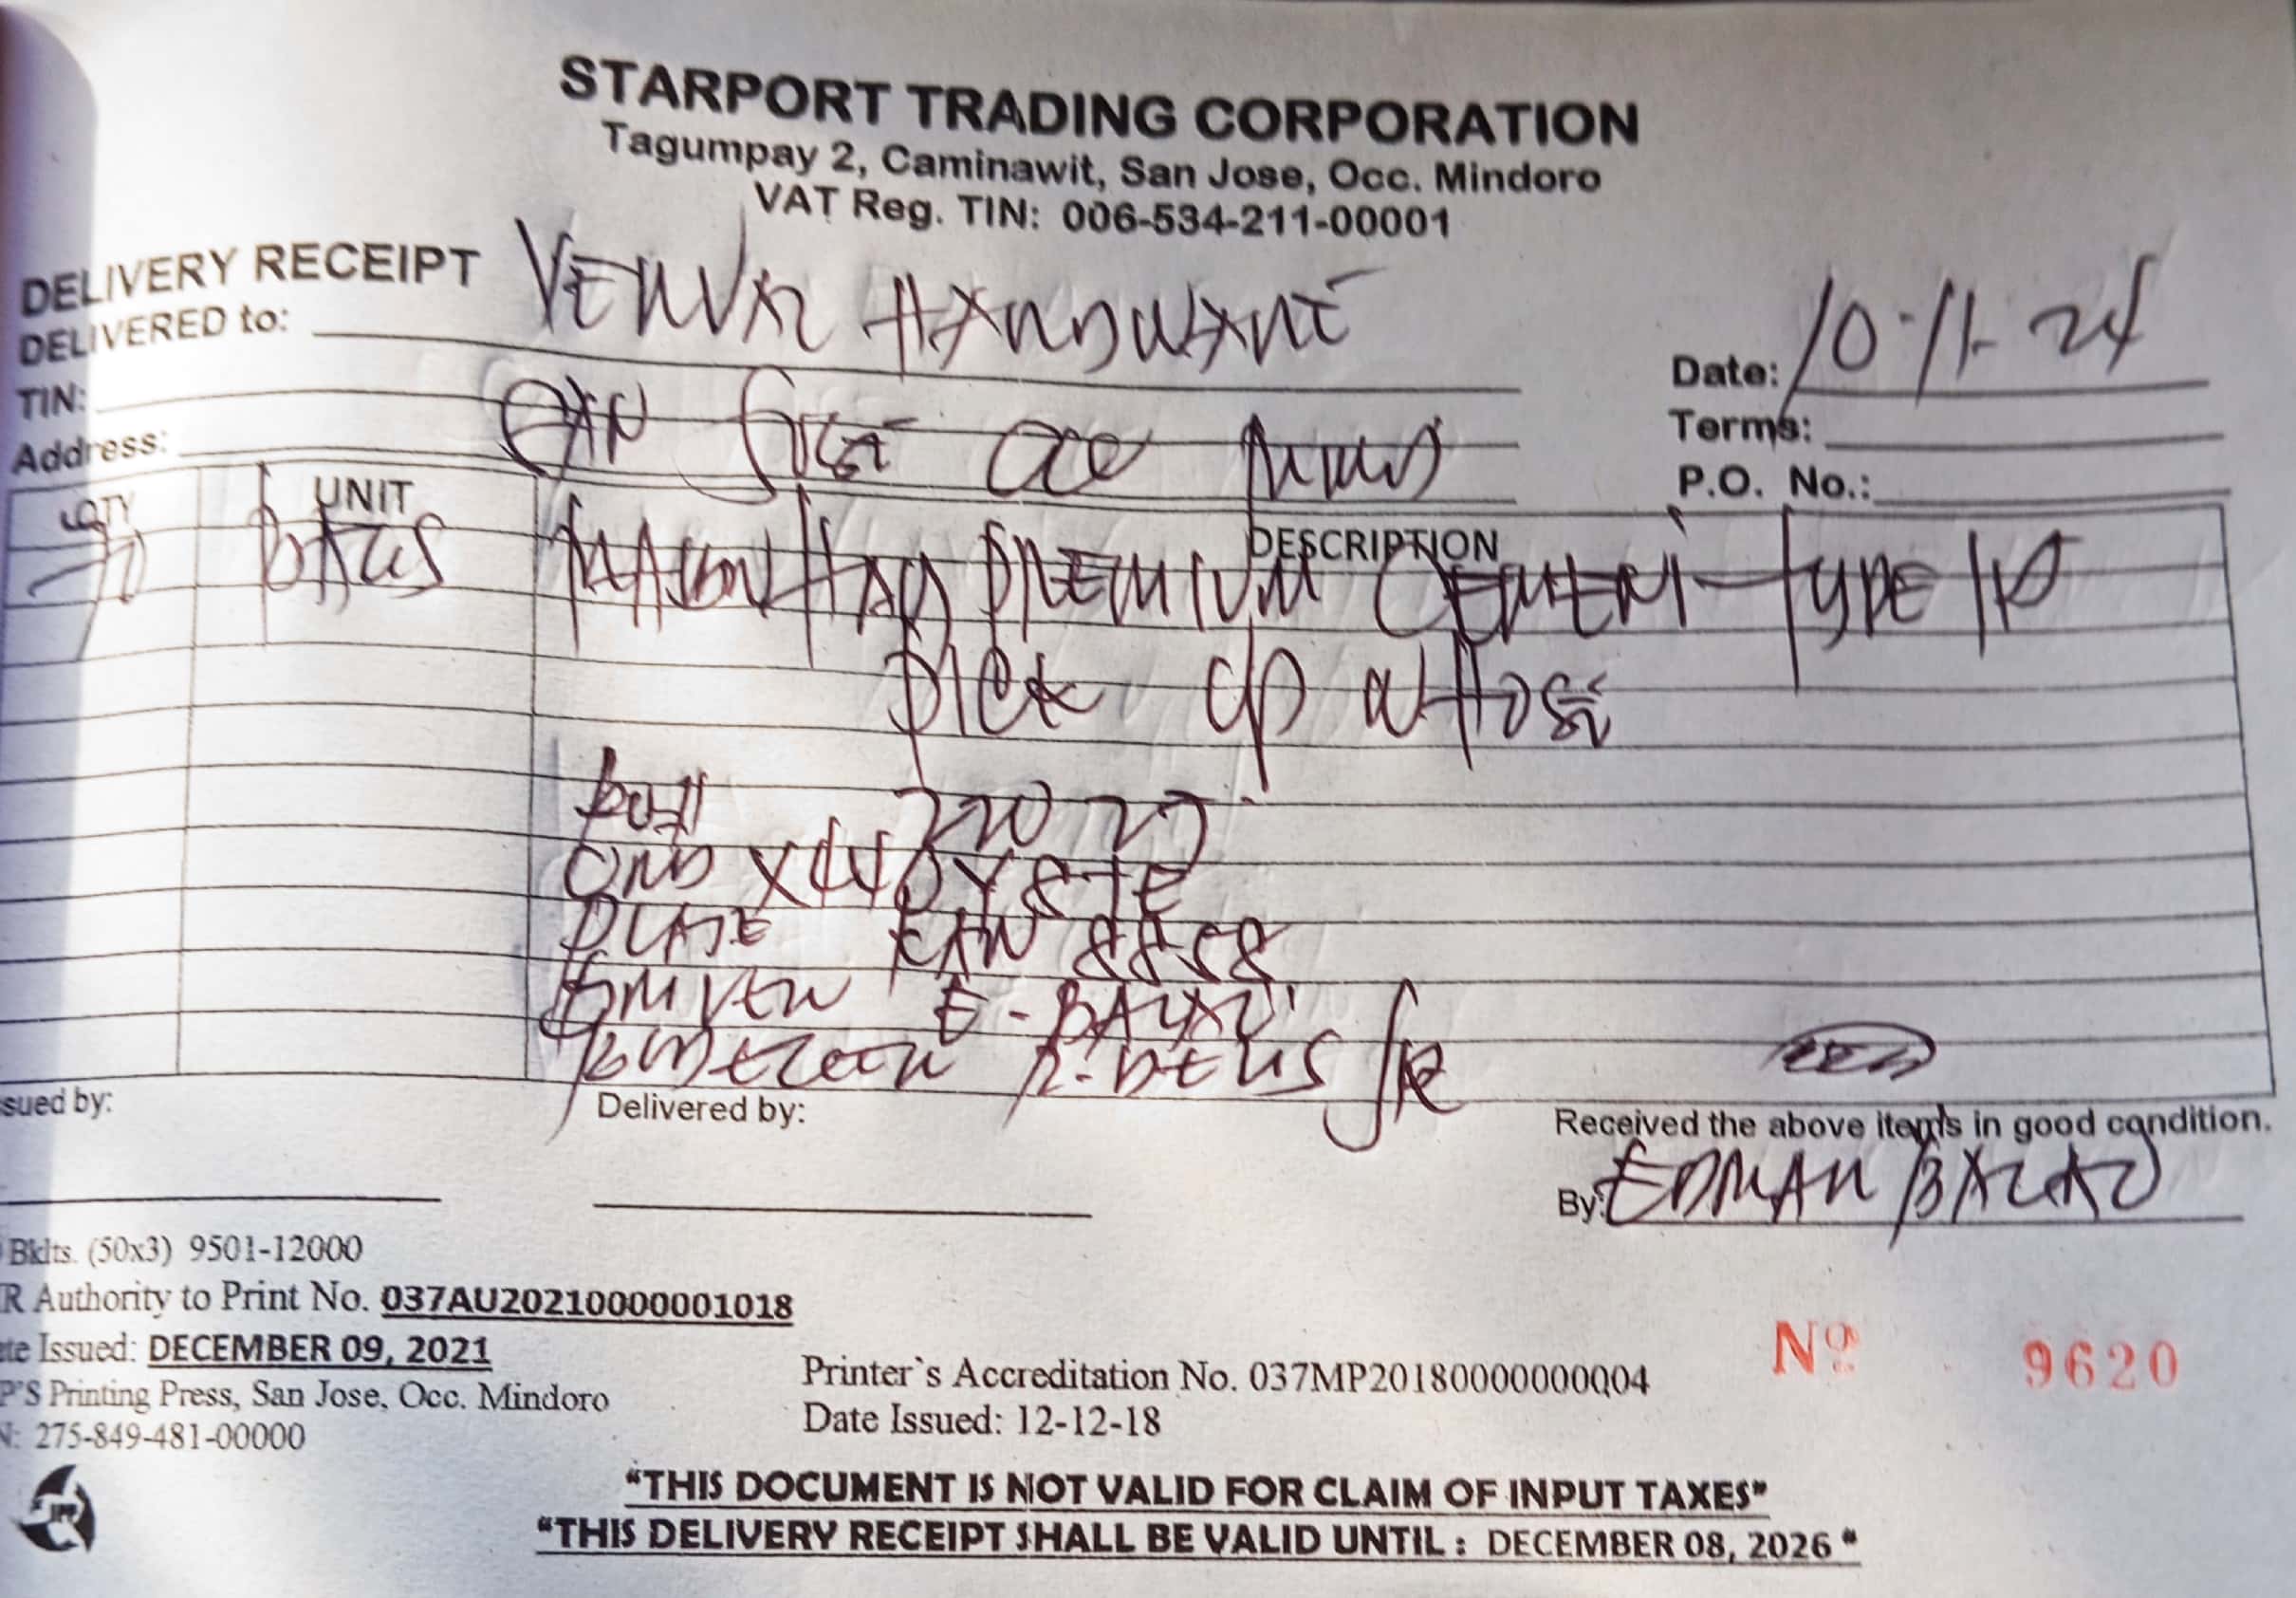 STARPORT TRADING CORPORATION
Tagumpay 2, Caminawit, San Jose, Occ. Mindoro
VAT Reg. TIN: 006-534-211-00001
DELIVERY RECEIPT
DELIVERED to: HARDWARE
Date: 10-11-24
TIN:
Terms:
Address: SAN JOSE OCC MIND
P.O. No.:
QTY UNIT DESCRIPTION
70 BAGS PREMIUM CEMENT TYPE 1P
PICK UP
220 27
PLATE 8858
DRIVER E-
R. DEUS JR
sued by:
Delivered by:
Received the above items in good condition.
By: EDMAR
Bklts. (50x3) 9501-12000
R Authority to Print No. 037AU20210000001018
te Issued: DECEMBER 09, 2021
P'S Printing Press, San Jose, Occ. Mindoro
N: 275-849-481-00000
Printer`s Accreditation No. 037MP20180000000004
Date Issued: 12-12-18
Nº 9620
"THIS DOCUMENT IS NOT VALID FOR CLAIM OF INPUT TAXES"
"THIS DELIVERY RECEIPT SHALL BE VALID UNTIL : DECEMBER 08, 2026 "